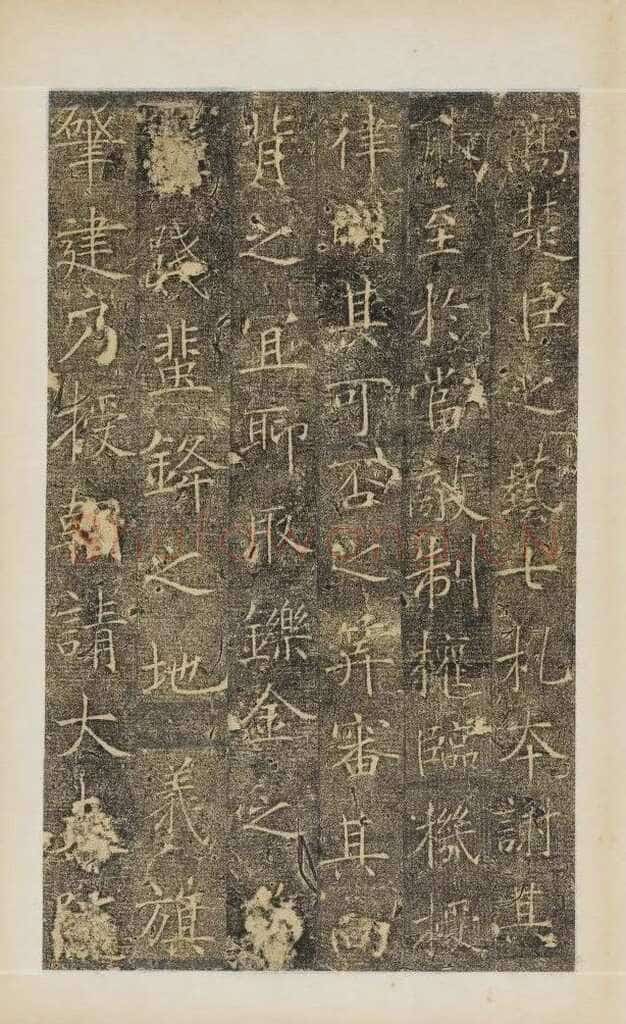 高楚臣之藝七札本謝其
至於當敵制權臨機授
律其可否之筭審其向
背之宜聊取鑠金之
踐蜚鋒之地義旗
肇建乃授朝請大